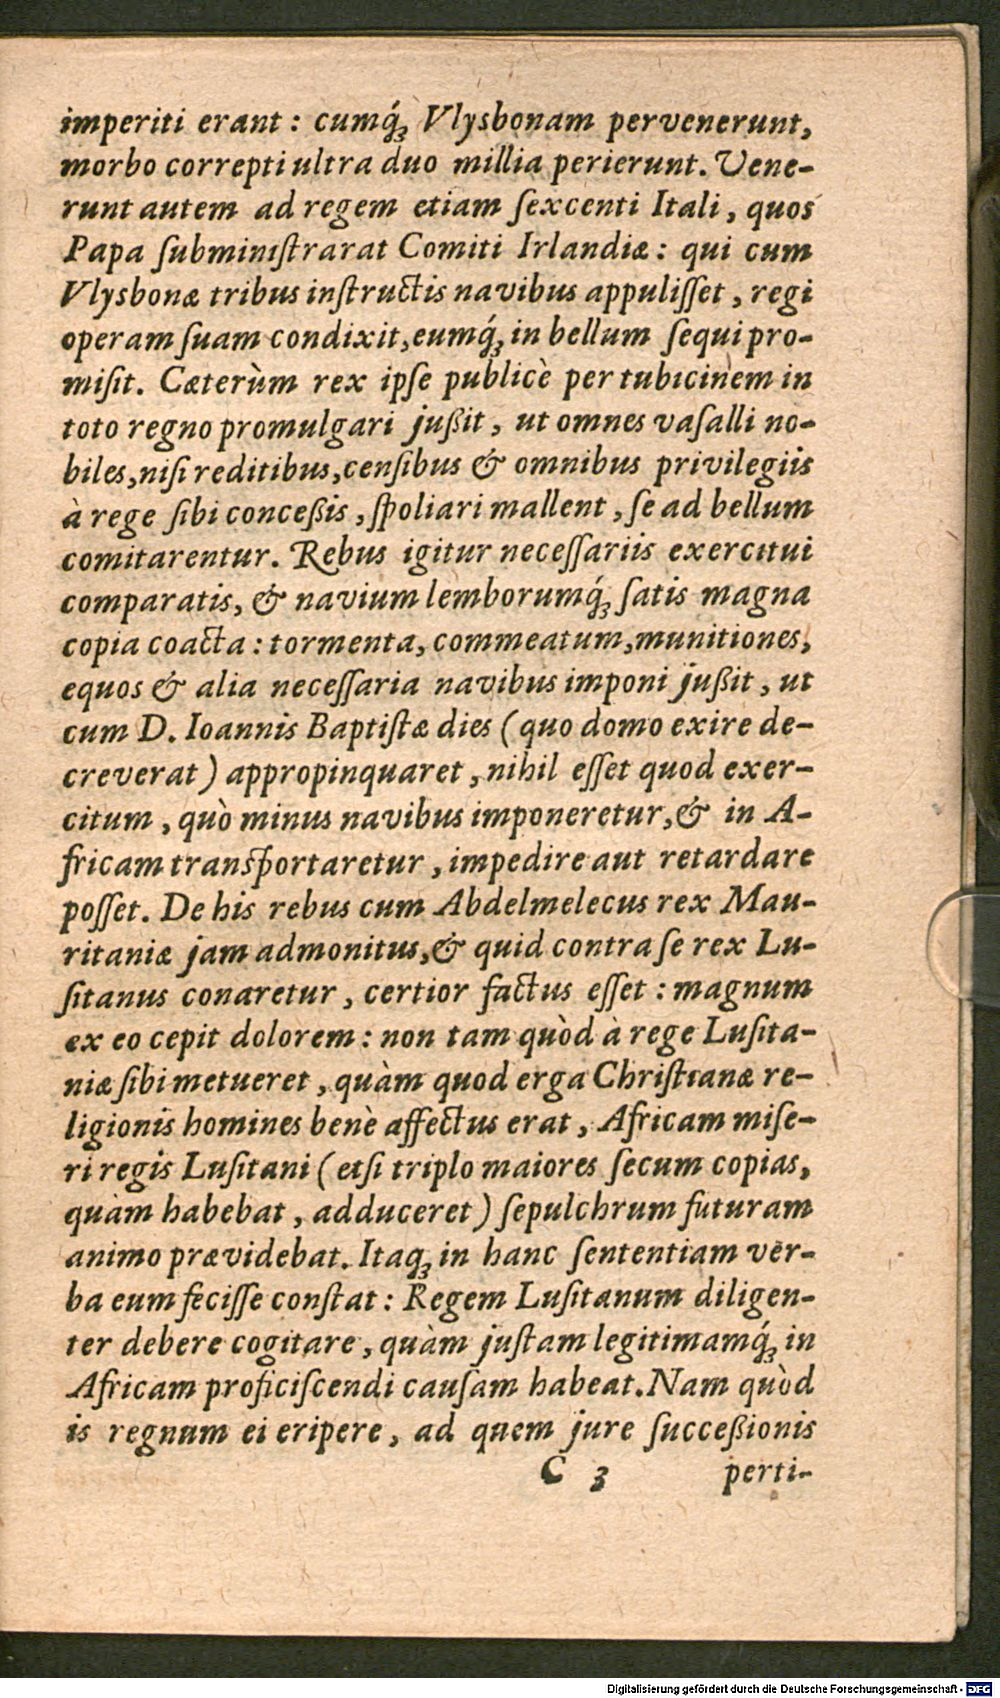 imperiti erant : cumq́ꝫ Vlysbonam pervenerunt,
morbo correpti ultra duo millia perierunt. Vene-
runt autem ad regem etiam ſexcenti Itali, quos
Papa ſubminiſtrarat Comiti Irlandiæ : qui cum
Vlysbonæ tribus inſtructis navibus appuliſſet, regi
operam ſuam condixit, eumq́ꝫ in bellum ſequi pro-
miſit. Cæterùm rex ipſe publicè per tubicinem in
toto regno promulgari jußit, ut omnes vaſalli no-
biles, niſi reditibus, cenſibus & omnibus privilegiis
à rege ſibi conceßis, ſpoliari mallent, ſe ad bellum
comitarentur. Rebus igitur neceſſariis exercitui
comparatis, & navium lemborumq́ꝫ ſatis magna
copia coacta : tormenta, commeatum, munitiones,
equos & alia neceſſaria navibus imponi jußit, ut
cum D. Ioannis Baptiſtæ dies ( quo domo exire de-
creverat ) appropinquaret, nihil eſſet quod exer-
citum, quò minus navibus imponeretur, & in A-
fricam tranſportaretur, impedire aut retardare
poſſet. De his rebus cum Abdelmelecus rex Mau-
ritaniæ jam admonitus, & quid contra ſe rex Lu-
ſitanus conaretur, certior factus eſſet : magnum
ex eo cepit dolorem : non tam quòd à rege Luſita-
niæ ſibi metueret, quàm quod erga Chriſtianæ re-
ligionis homines benè affectus erat, Africam miſe-
ri regis Luſitani ( etſi triplo maiores ſecum copias,
quàm habebat, adduceret ) ſepulchrum futuram
animo prævidebat. Itaqꝫ in hanc ſententiam ver-
ba eum feciſſe conſtat : Regem Luſitanum diligen-
ter debere cogitare, quàm juſtam legitimamq́ꝫ in
Africam proficiſcendi cauſam habeat. Nam quòd
is regnum ei eripere, ad quem jure ſucceßionis
C 3 perti-
Digitalisierung gefördert durch die Deutsche Forschungsgemeinschaft - DFG